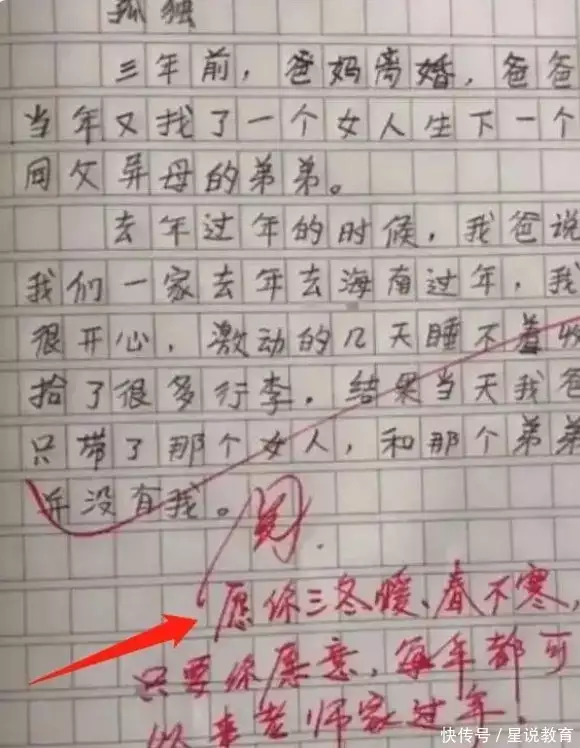 孤独
三年前，爸妈离婚，爸爸
当年又找了一个女人生下一个
同父异母的弟弟。
去年过年的时候，我爸说
我们一家去年去海南过年，我
很开心，激动的几天睡不着收
拾了很多行李，结果当天我爸
只带了那个女人，和那个弟弟
并没有我。
阅
愿你三冬暖、春不寒，
只要你愿意，每年都可
以来老师家过年！
快传号/星说教育